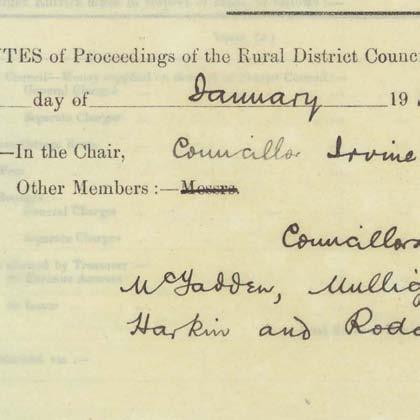 UTES of Proceedings of the Rural District Counc
day of January 19
—In the Chair, Councillor Irvine
Other Members :—Messrs.
Councillors
McFadden, Mullig
Harkin and Rod